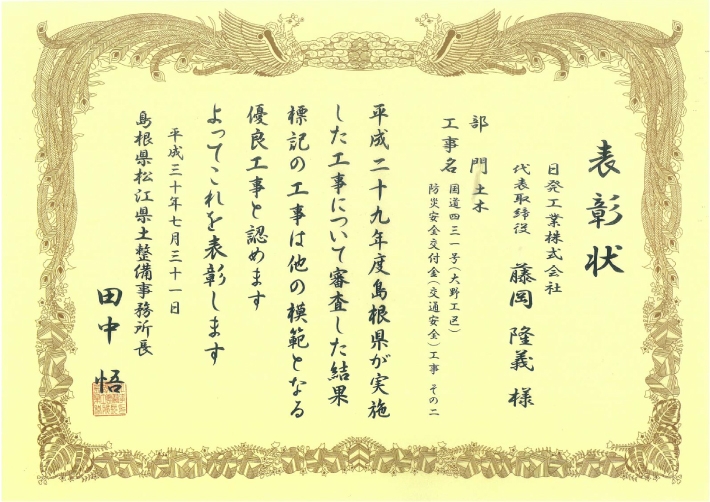 表彰状
日発工業株式会社
代表取締役 藤岡隆義様
部門 土木
工事名 国道四三一号(大野工区)
防災安全交付金(交通安全)工事 その二
平成二十九年度島根県が実施
した工事について審査した結果
標記の工事は他の模範となる
優良工事と認めます
よってこれを表彰します
平成三十年七月三十一日
島根県松江県土整備事務所長
田中悟